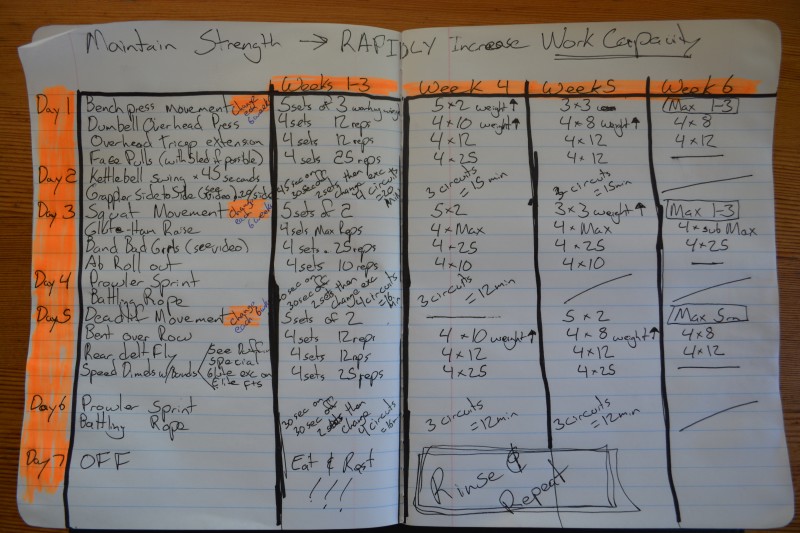 Maintain Strength → RAPIDLY Increase Work Capacity
Weeks 1-3 Week 4 Week 5 Week 6
Day 1 Bench press Movement change each 6 weeks 5 sets of 3 working weight 5 x 2 weight↑ 3 x 3 Max 1-3
Dumbell Overhead Press 4 sets 12 reps 4 x 10 weight↑ 4 x 8 weight↑ 4 x 8
Overhead Tricep extension 4 sets 12 reps 4 x 12 4 x 12 4 x 12
Face Pulls (with Sled if possible) 4 sets 25 reps 4 x 25 4 x 12 —
Day 2 Kettlebell swing x 45 seconds 45 sec on 30 sec off 2 sets then change exc 4 circuits = 20 min 3 circuits = 15 min 3 circuits = 15 min
Grappler Side to Side (see video)
Day 3 Squat Movement change each 6 weeks 5 sets of 2 5 x 2 3 x 3 weight↑ Max 1-3
Glute-Ham Raise 4 sets Max Reps 4 x Max 4 x Max 4 x sub Max
Band Bad Grrls (see video) 4 sets 25 reps 4 x 25 4 x 25 4 x 25
Ab Roll out 4 sets 10 reps 4 x 10 4 x 10 —
Day 4 Prowler Sprint 30 sec on 30 sec off 2 sets then change exc 4 circuits = 16 min 3 circuits = 12 min
Battling Rope
Day 5 Deadlift Movement change each 6 weeks 5 sets of 2 — 5 x 2 Max
Bent over Row 4 sets 12 reps 4 x 10 weight↑ 4 x 8 weight↑ 4 x 8
Rear delt Fly 4 sets 12 reps 4 x 12 4 x 12 4 x 12
Speed w/Bands See special exc on Elite fts 4 sets 25 reps 4 x 25 4 x 25 —
Day 6 Prowler Sprint 30 sec on 30 sec off 2 sets then change 4 circuits = 16 min 3 circuits = 12 min 3 circuits = 12 min
Battling Rope
Day 7 OFF Eat & Rest !!! Rinse & Repeat